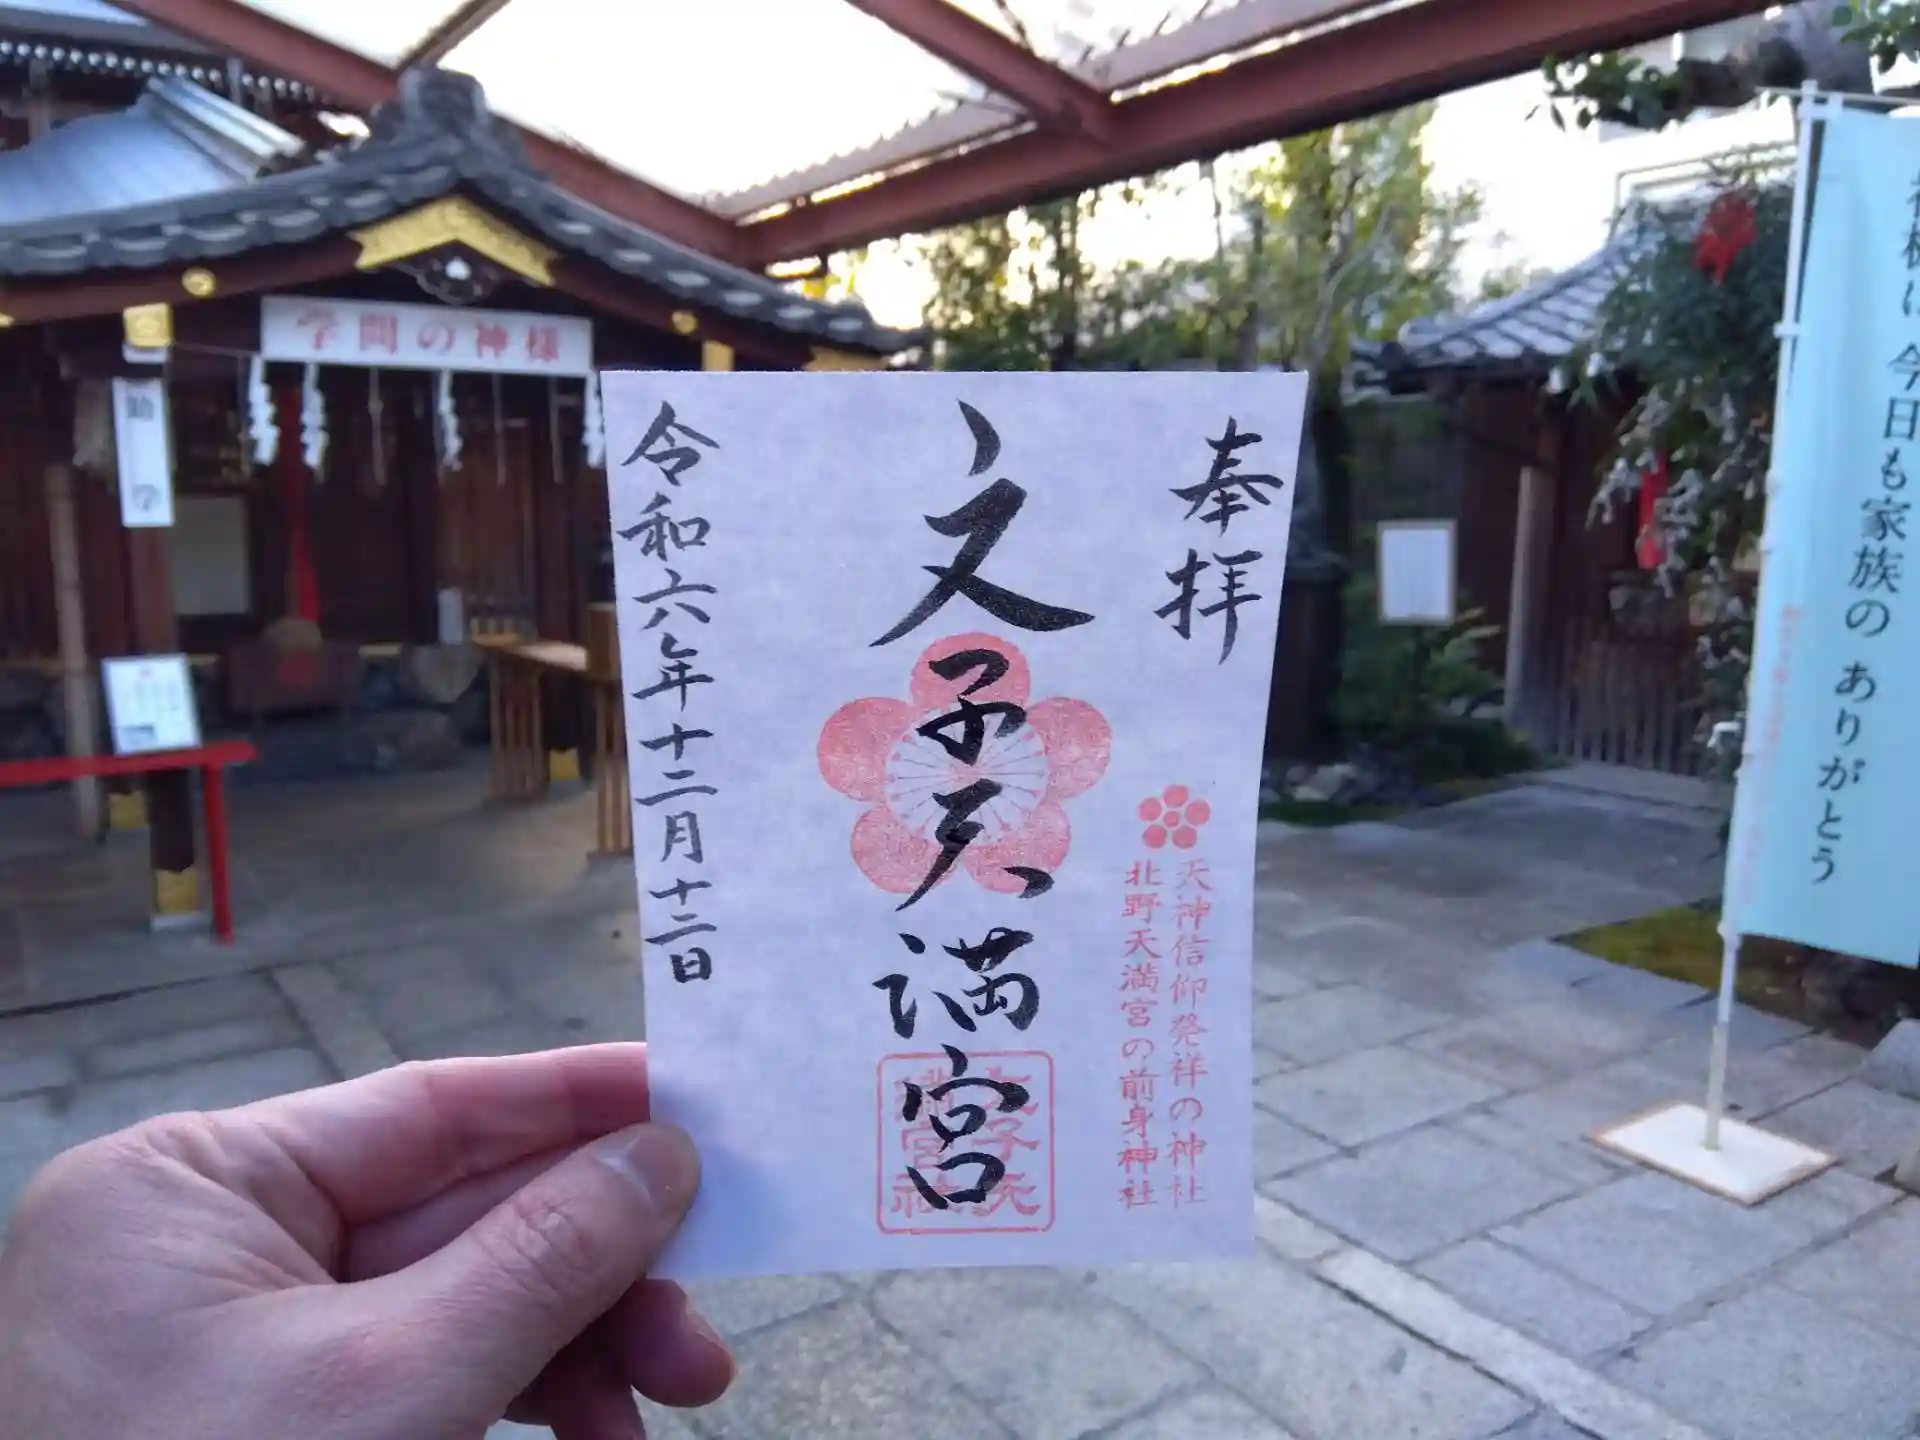 奉拝
天神信仰発祥の神社
北野天満宮の前身神社
文子天満宮
文子天満宮社
令和六年十二月十二日
学問の神様
今日も家族の ありがとう